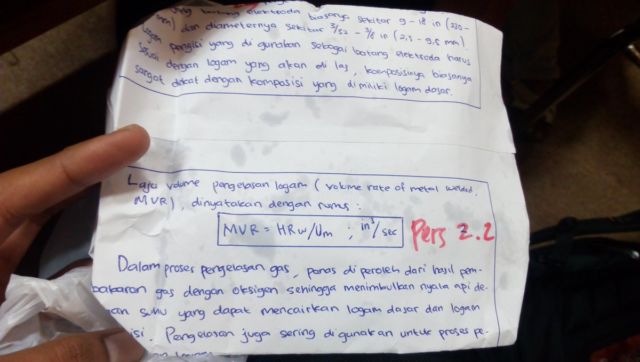 batang elektroda biasanya sekitar 9 - 18 in (220 -
mm) dan diameternya sekitar 3/32 - 3/8 in (2,3 - 9,5 mm).
logam pengisi yang di gunakan sebagai batang elektroda harus
sesuai dengan logam yang akan di las, komposisinya biasanya
sangat dekat dengan komposisi yang dimiliki logam dasar.
Laju volume pengelasan logam (volume rate of metal welded,
MVR), dinyatakan dengan rumus :
MVR = HRw/Um ; in³/sec
Pers 2.2
Dalam proses pengelasan gas, panas di peroleh dari hasil pem-
bakaran gas dengan oksigen sehingga menimbulkan nyala api de-
an suhu yang dapat mencairkan logam dasar dan logam
isi. Pengelasan juga sering digunakan untuk proses pe-